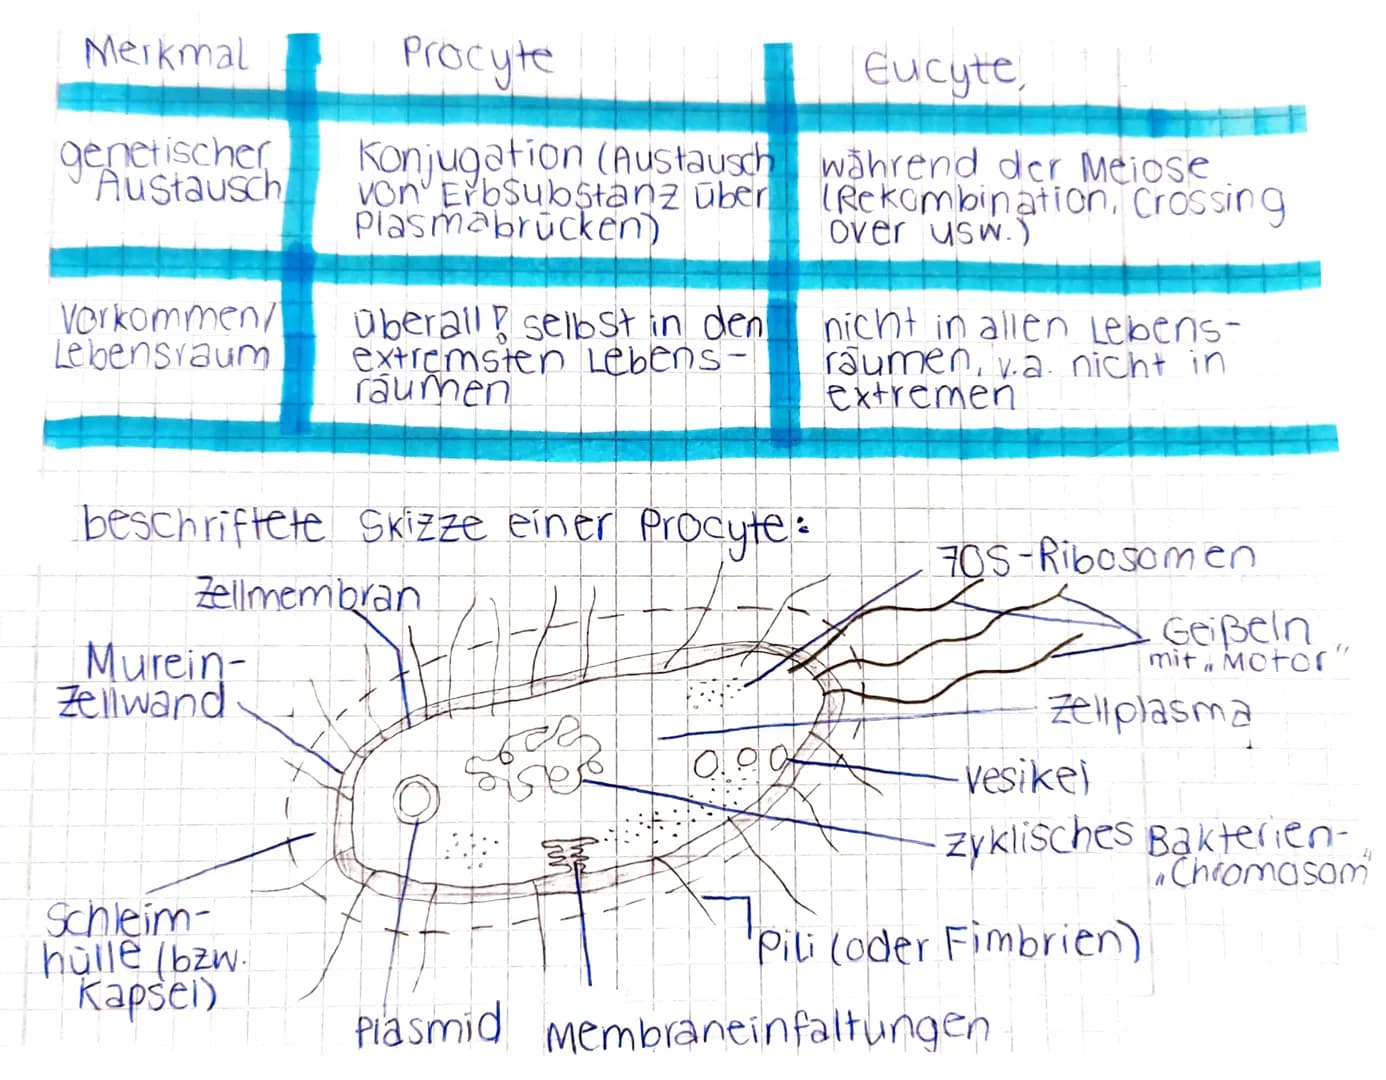 Merkmal
Procyte
Eucyte
genetischer
Austausch
Konjugation (Austausch
von Erbsubstanz über
Plasmabrücken)
während der Meiose
(Rekombination, Crossing
over usw.)
Vorkommen/
Lebensraum
überall! selbst in den
extremsten Lebens-
räumen
nicht in allen Lebens-
räumen, v.a. nicht in
extremen
beschriftete Skizze einer Procyte:
70S-Ribosomen
Zellmembran
Geißeln
mit „Motor“
Murein-
Zellwand
Zellplasma
Vesikel
zyklisches Bakterien-
„Chromosom“
Schleim-
hülle (bzw.
Kapsel)
Pili (oder Fimbrien)
Plasmid
Membraneinfaltungen